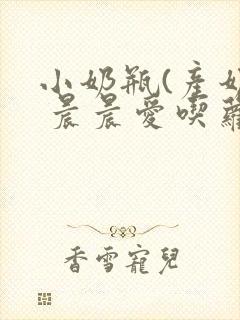 小奶瓶(產奶
晨晨愛喫蘿
香雪寵兒